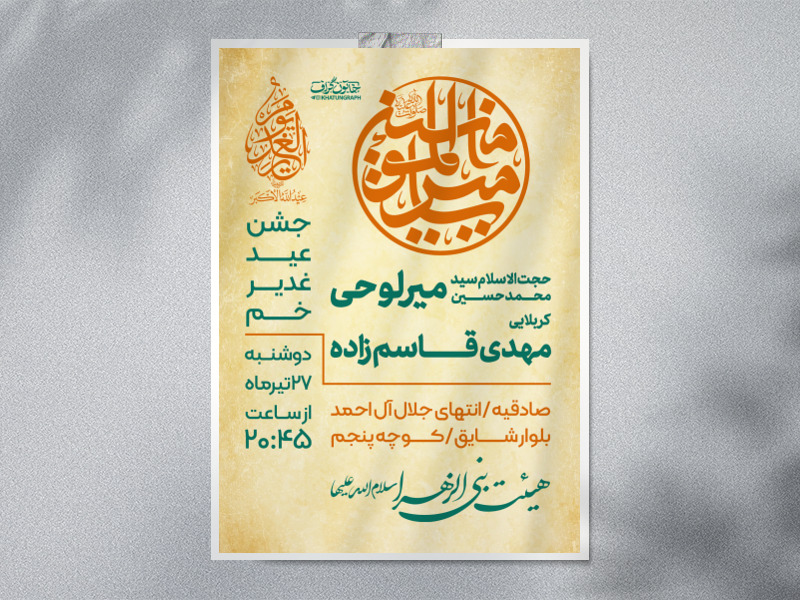 خاتون گراف
KHATUNGRAPH
یوم الغدیر
عیدالله الاکبر
جشن
عید
غدیر
خم
حجت‌الاسلام سید
محمد حسین
میرلوحی
کربلایی
مهدی قاسم‌زاده
دوشنبه
۲۷ تیرماه
از ساعت
۲۰:۴۵
صادقیه / انتهای جلال آل احمد
بلوار شایق / کوچه پنجم
هیئت بنی الزهرا سلام الله علیها